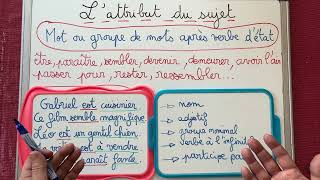 L'attribut du sujet
Mot ou groupe de mots après verbe d'état
être, paraître, sembler, devenir, demeurer, avoir l'air
passer pour, rester, ressembler...
Gabriel est cuisinier.
Ce film semble magnifique.
Léo est un gentil chien.
est à vendre.
paraît
→ nom
→ adjectif
→ groupe nominal
→ Verbe à l'infinitif
→ participe